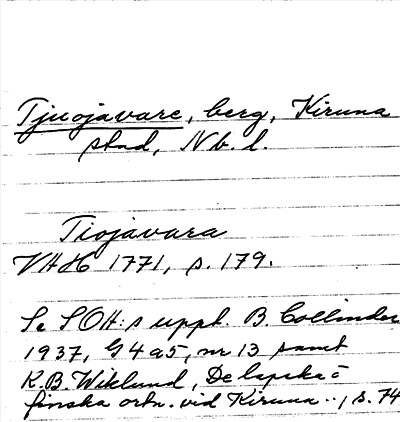 Tjuojavare, berg, Kiruna
stad, Nb. l.
Tiojavara
VHAH 1771, s. 179.
Se SOH:s uppt. B. Collinder
1937, G 4 a5, nr 13 samt
K.B. Wiklund, De lapska o
finska ortn. vid Kiruna .., s. 74